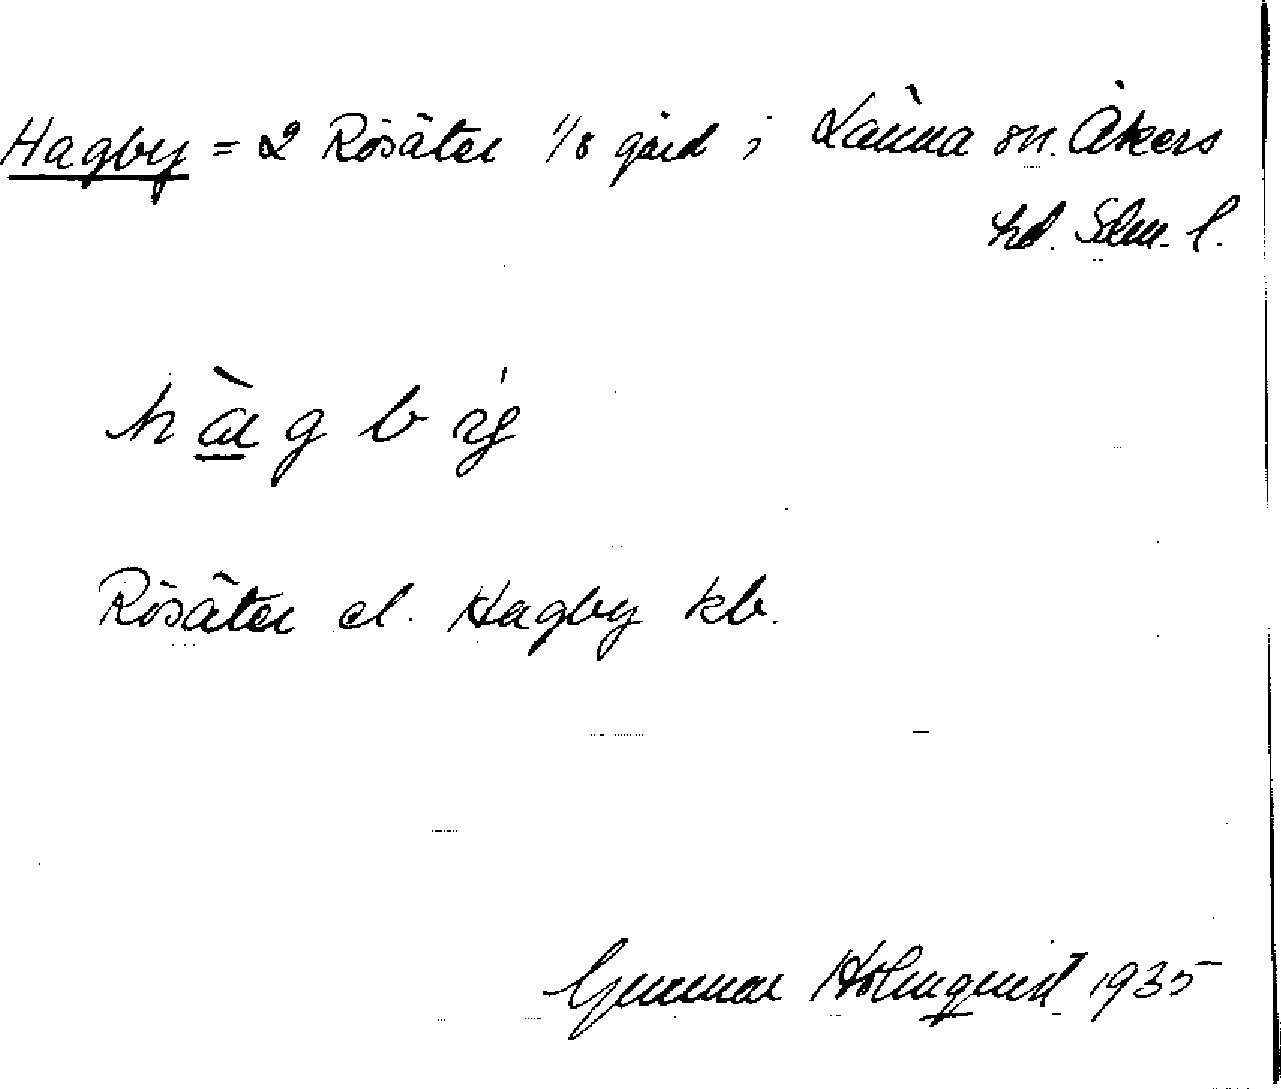 Hagby = 2 Rösäter 1/8 gård i Länna sn. Åkers
hd. Sdm. l.
hàgbý
Rösäter el. Hagby kb.
Gunnar Holmquist 1935